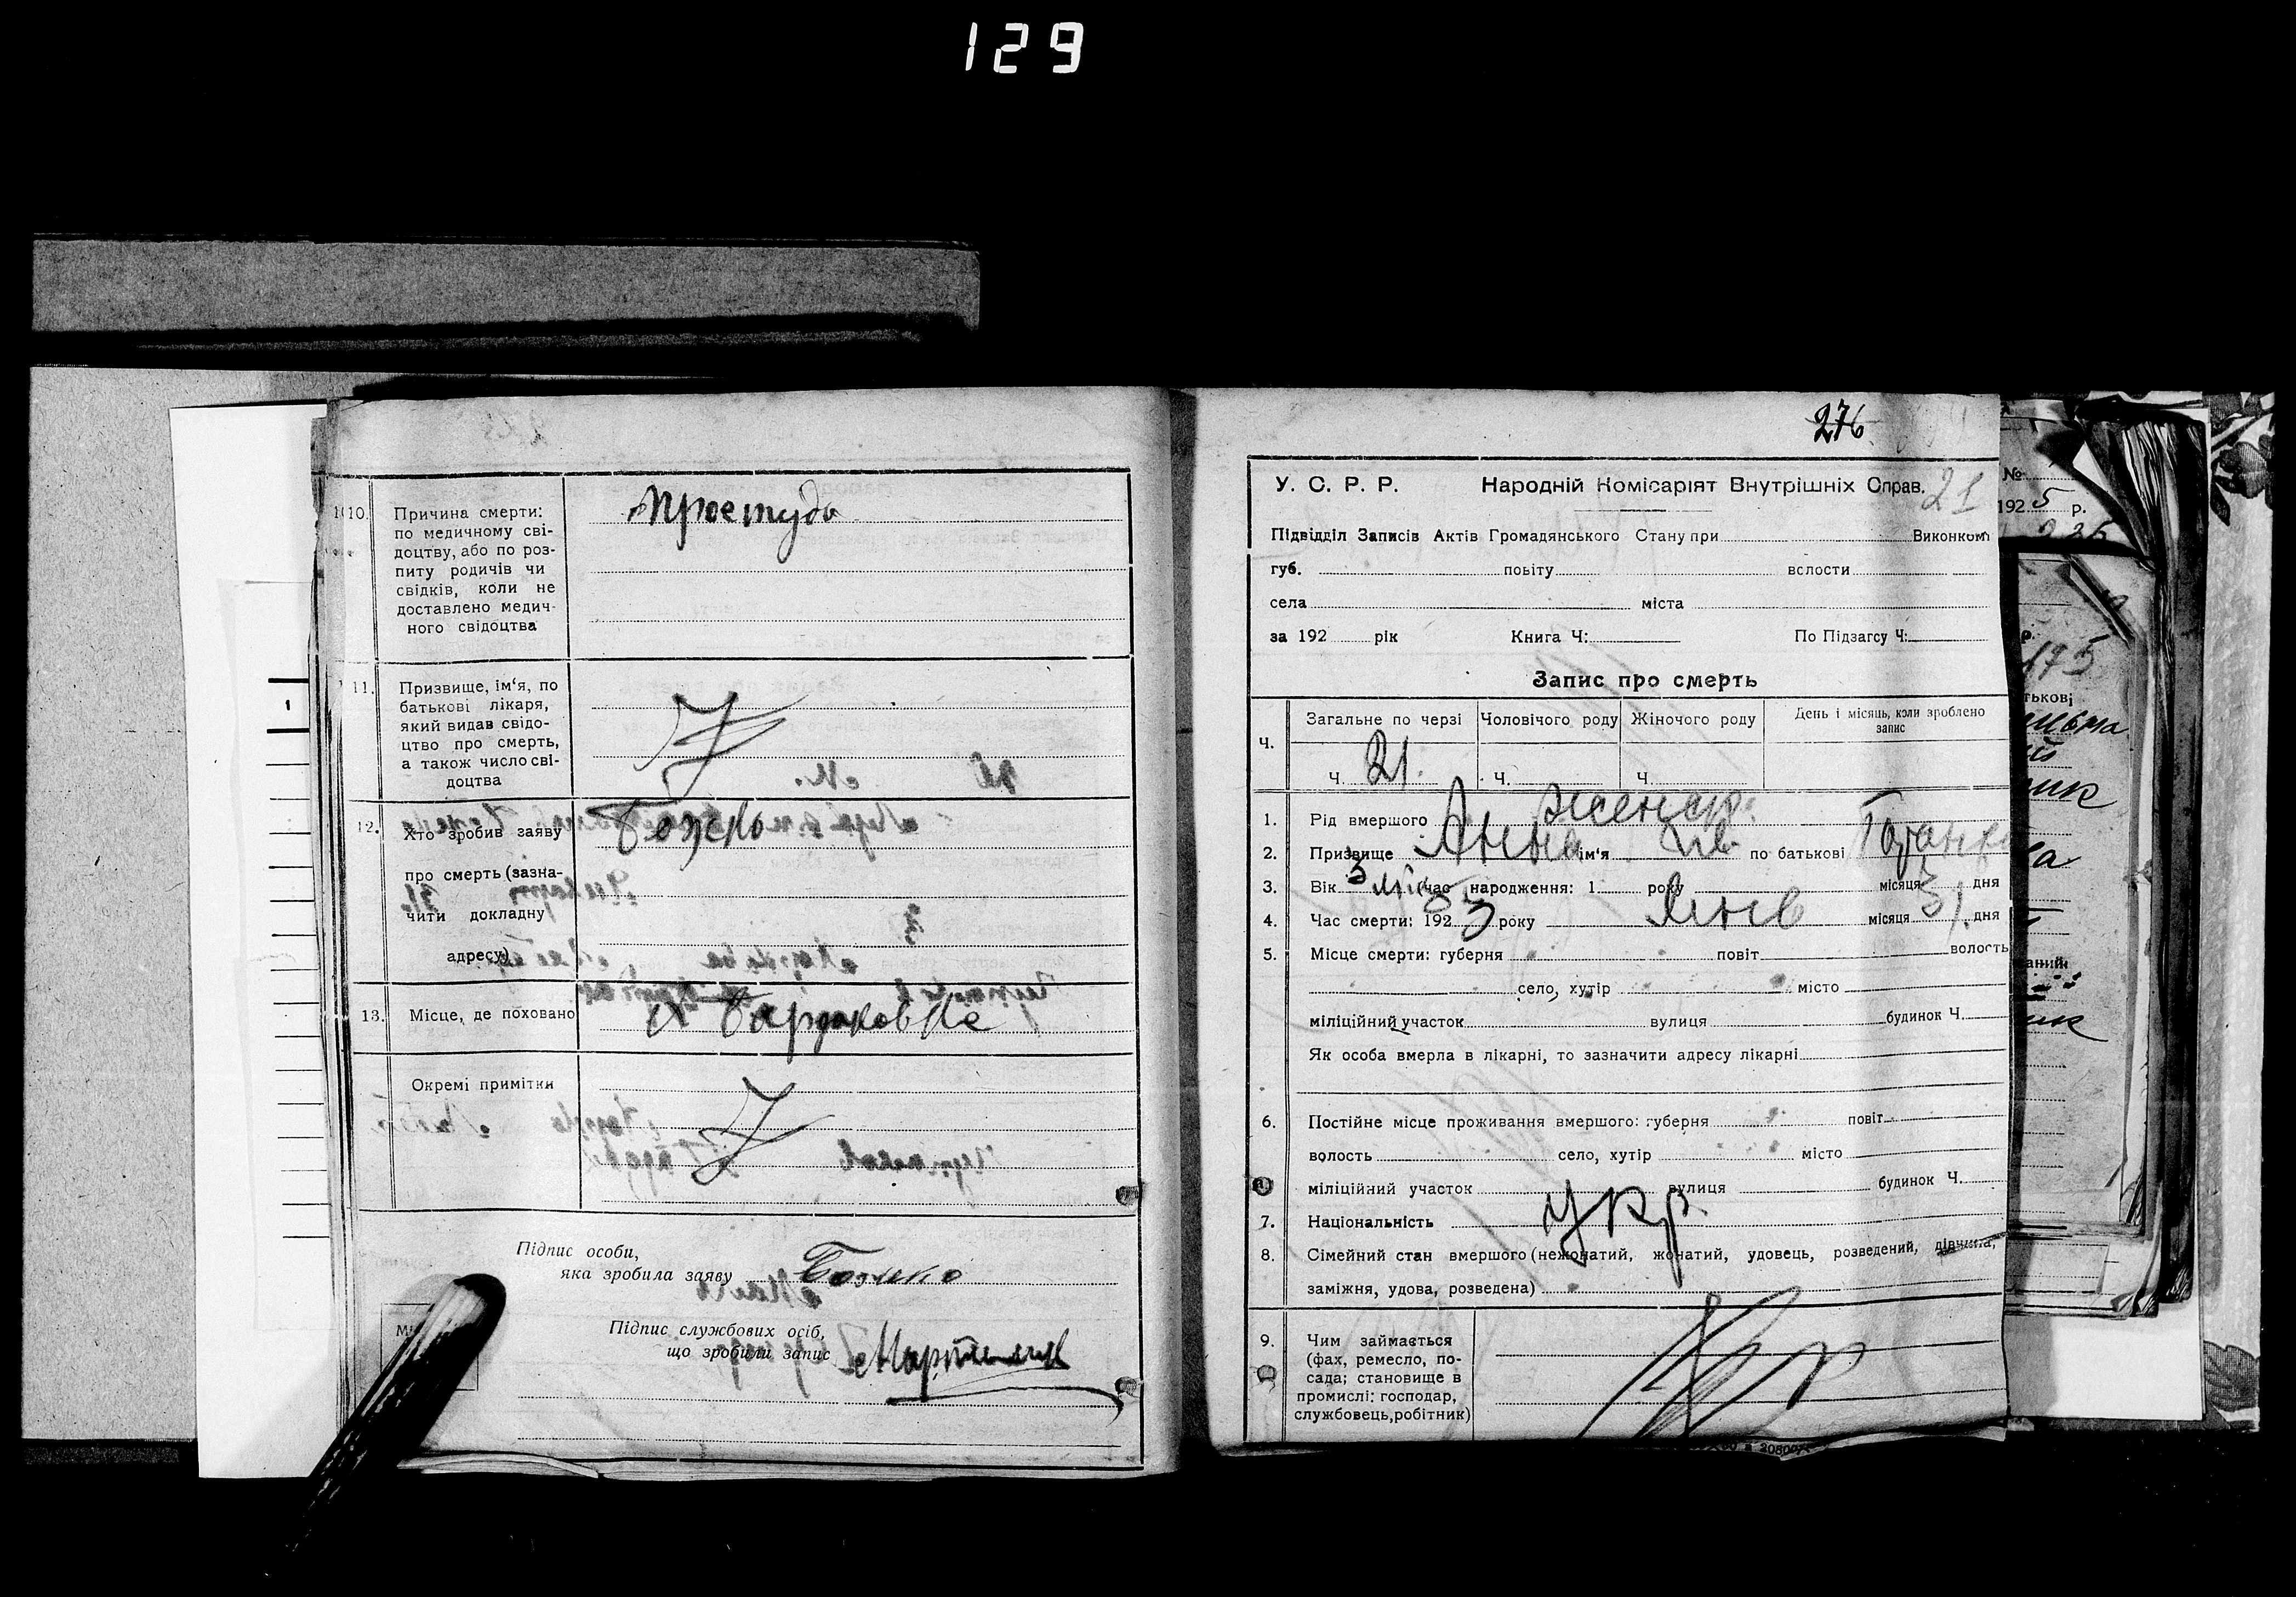 129
10.
Причина смерти:
по медичному сві-
доцтву, або по роз-
питу родичів чи
свідків, коли не
доставлено медич-
ного свідоцтва
простуда
11.
Призвище, ім‘я, по
батькові лікаря,
який видав свідо-
цтво про смерть,
а також число сві-
доцтва
12.
Хто зробив заяву
про смерть (зазна-
чити докладну
адресу)
Божко
13. Місце, де поховано
Окремі примітки
Підпис особи,
яка зробила заяву Божко
Підпис службових осіб,
що зробили запис
276
У. С. Р. Р. Народній Комісаріят Внутрішніх Справ. 21
Підвідділ Записів Актів Громадянського Стану при Виконком
губ. повіту волости
села міста
за 192 рік Книга Ч: По Підзагсу Ч:
Запис про смерть
Ч.
Загальне по черзі Чоловічого роду Жіночого роду День і місяць, коли зроблено запис
Ч. 21. Ч. Ч.
1. Рід вмершого
2. Призвище Анна ім‘я по батькові
3. Вік 3 час народження: 1 року місяця дня
4. Час смерти: 192 5 року Янв місяця 31. дня
5. Місце смерти: губерня повіт волость
село, хутір місто
міліційний участок вулиця будинок Ч.
Як особа вмерла в лікарні, то зазначити адресу лікарні
6. Постійне місце проживання вмершого: губерня повіт
волость село, хутір місто
міліційний участок вулиця будинок Ч.
7. Національність укр.
8. Сімейний стан вмершого (нежонатий, жонатий, удовець, розведений, дівчина,
заміжня, удова, розведена)
9. Чим займається
(фах, ремесло, по-
сада; становище в
промислі: господар,
службовець, робітник)
№
1925 р.
175